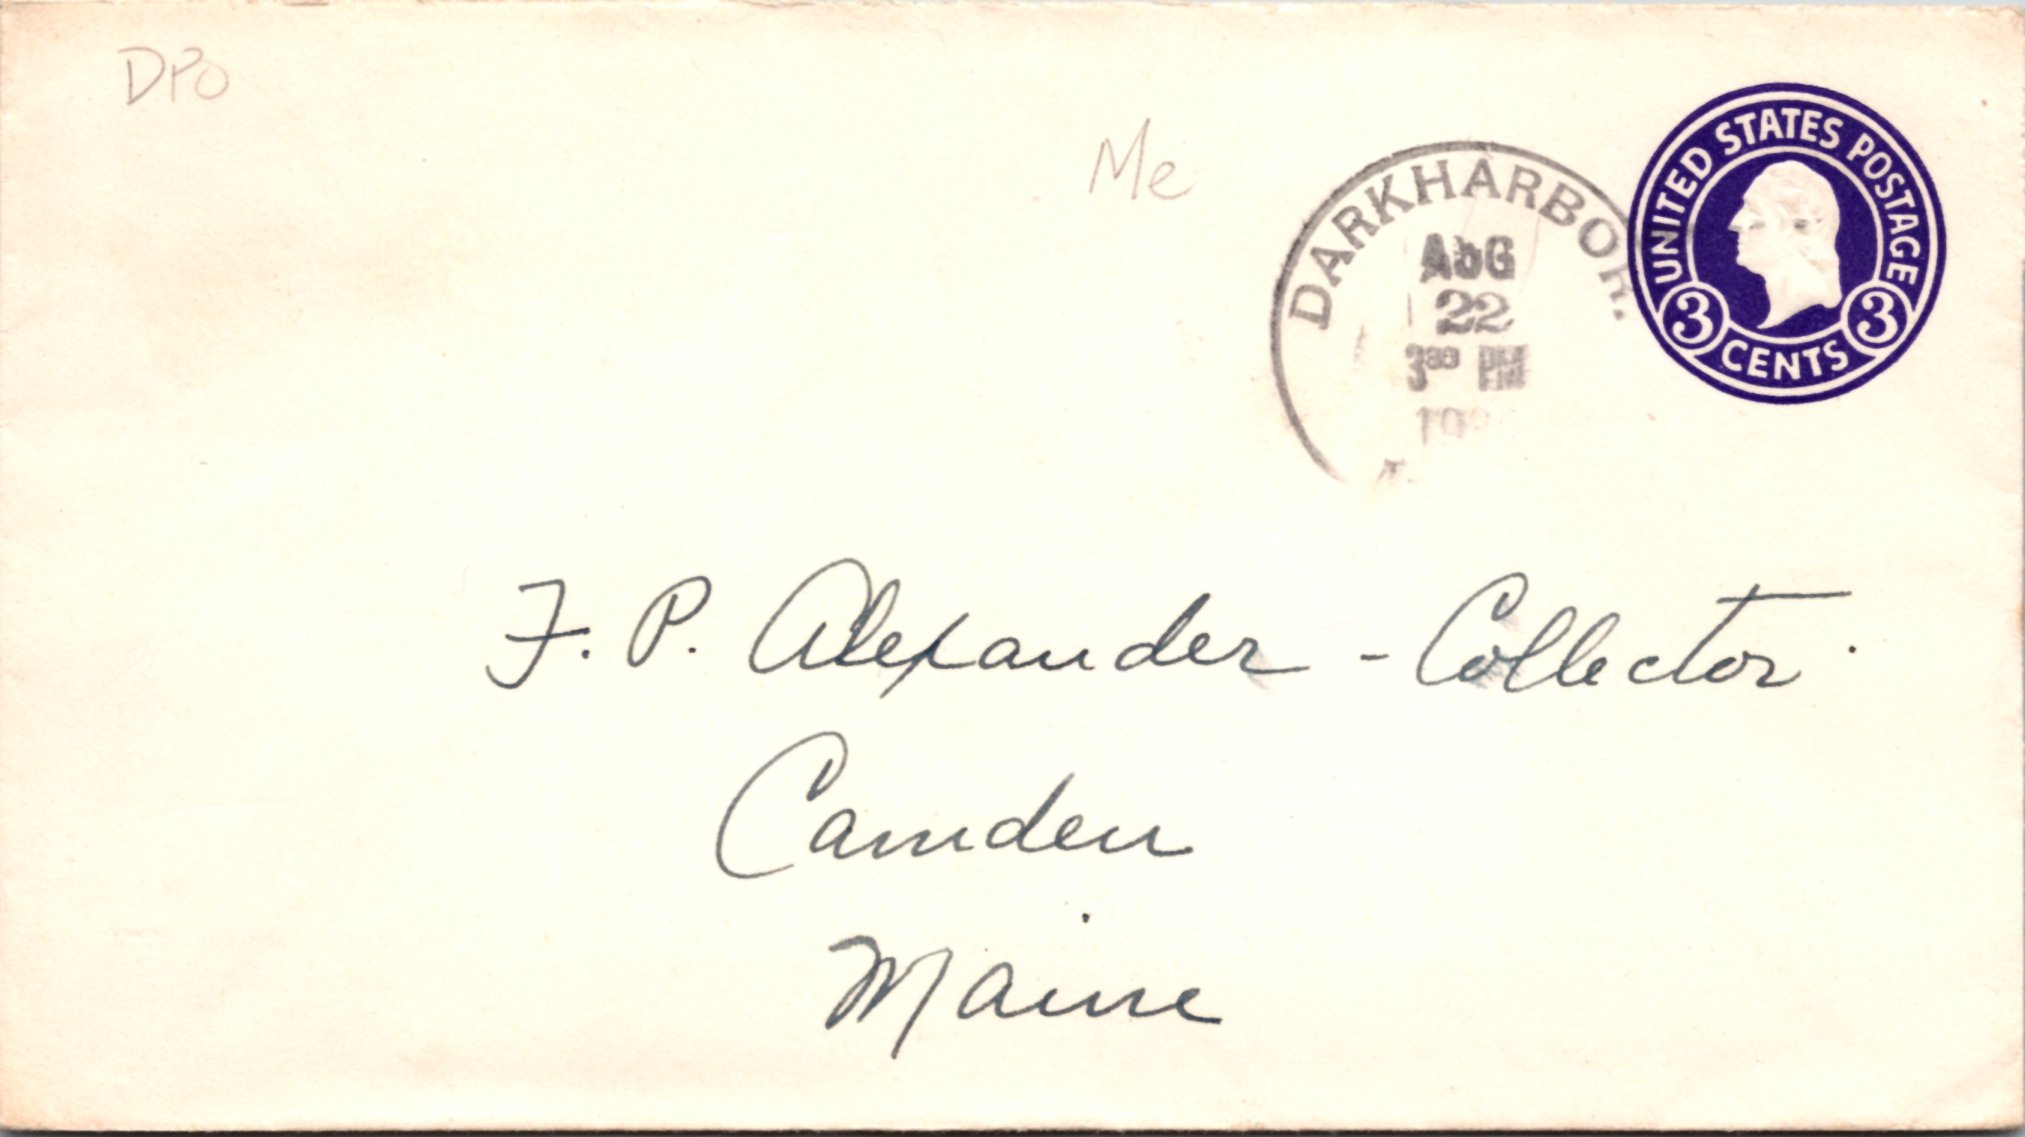 DPO
Me
DARKHARBOR.
AUG
22
3 30 PM
UNITED STATES POSTAGE
3 CENTS 3
F. P. Alexander - Collector.
Camden
Maine